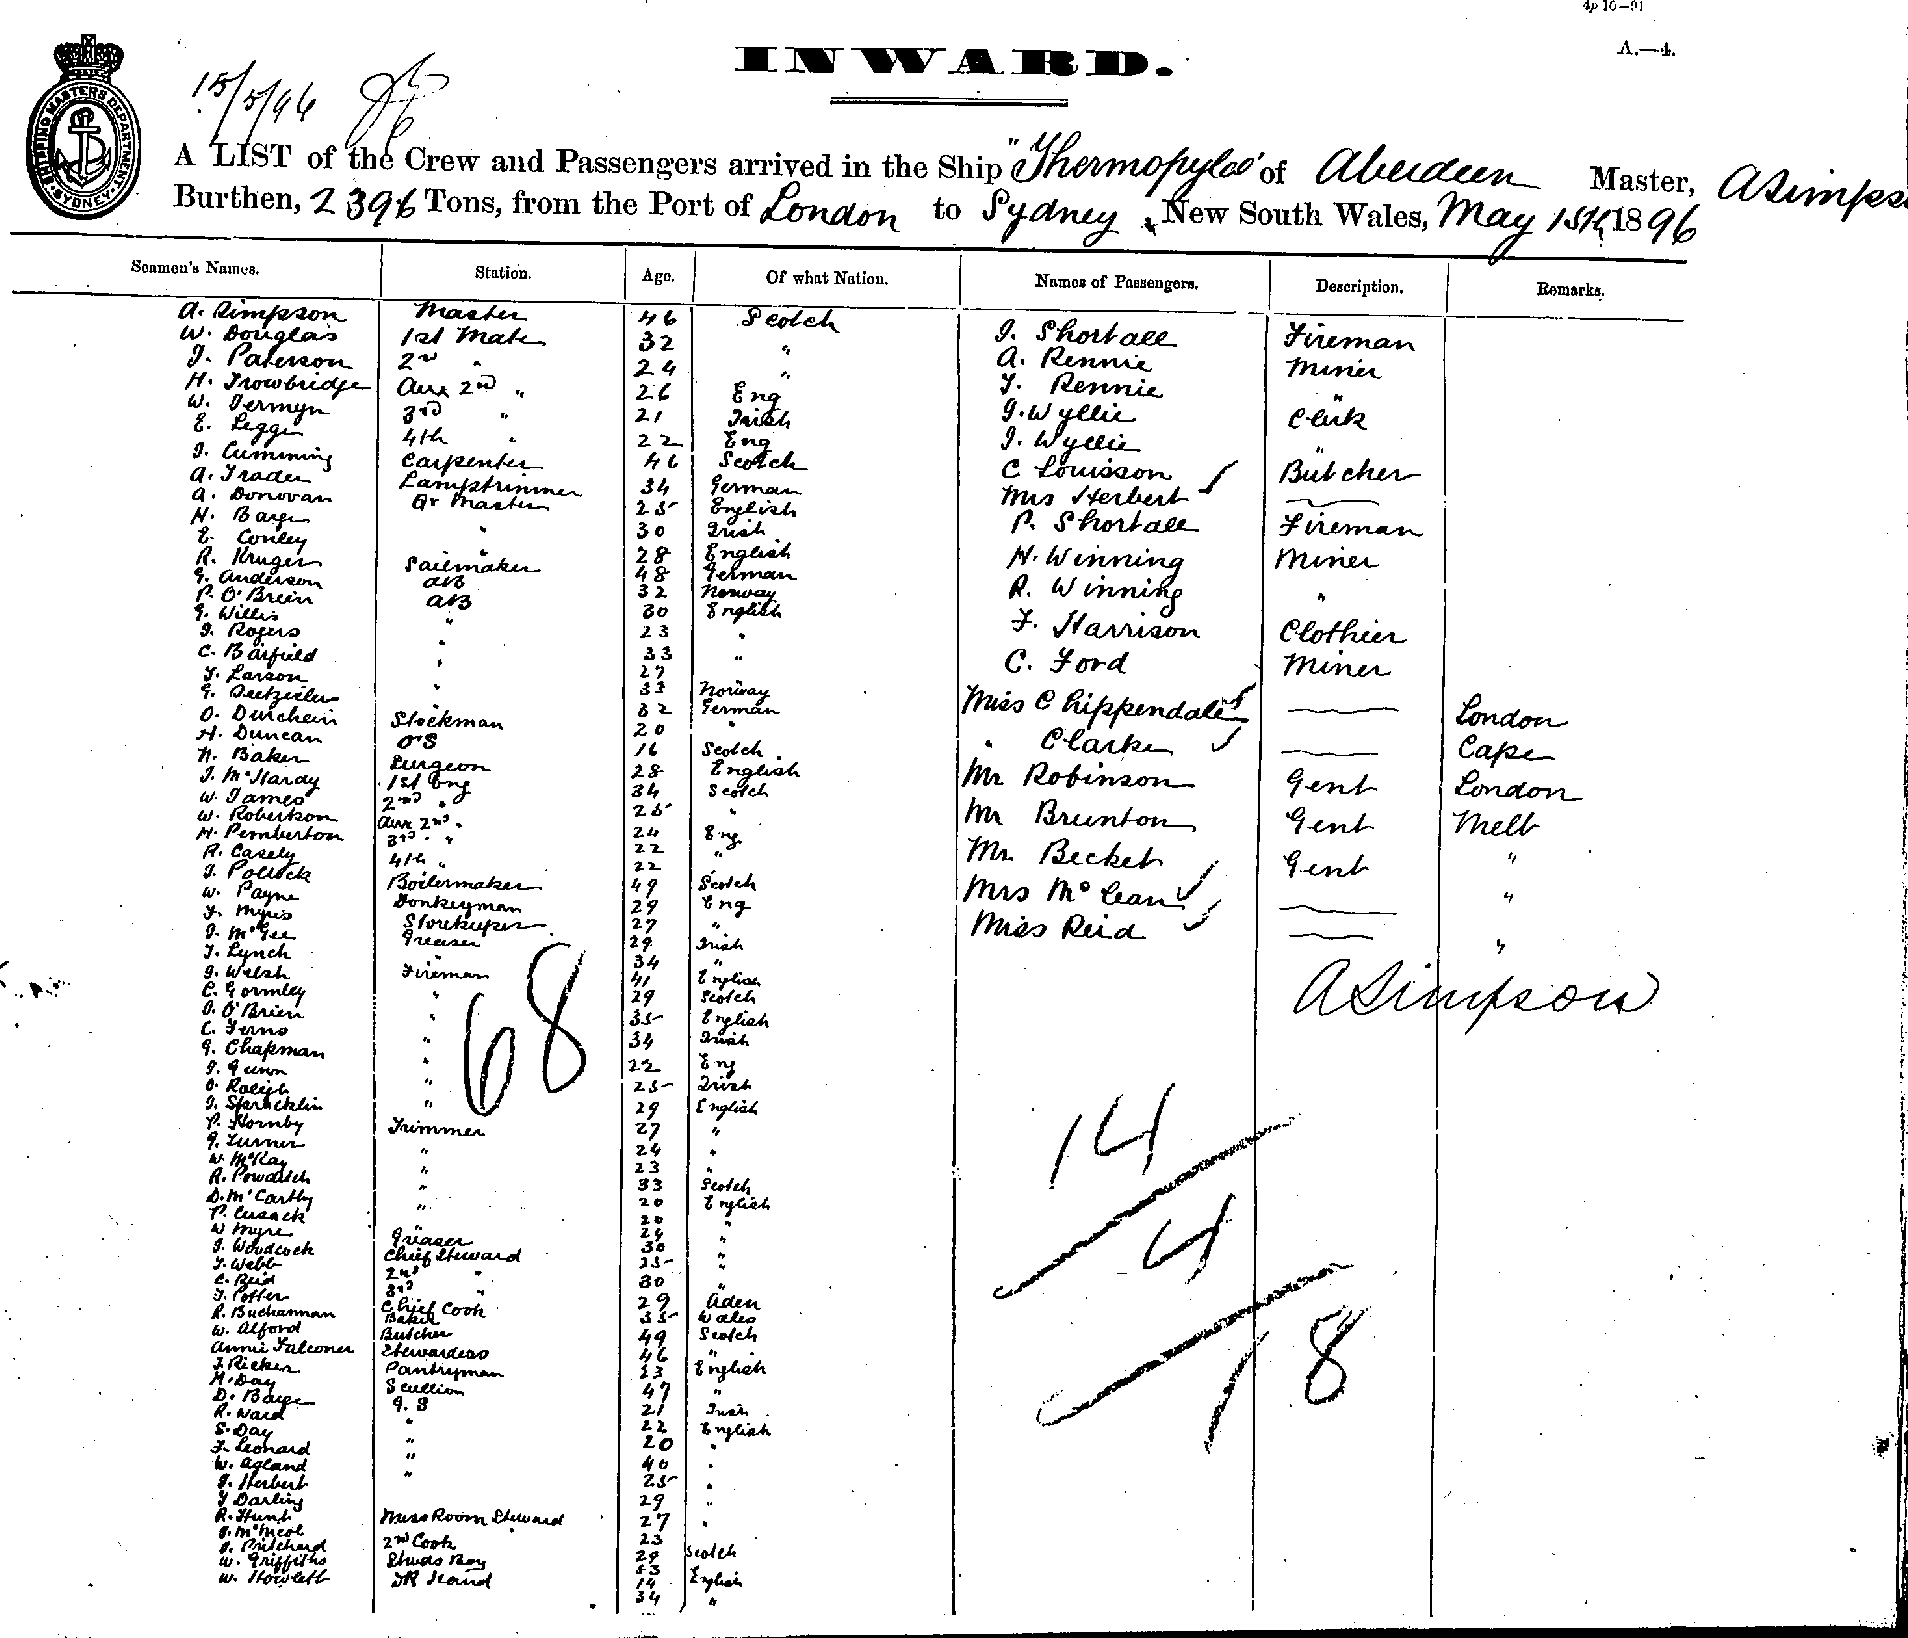 4p 10—91
A.—4.
INWARD.
SHIPPING MASTERS DEPARTMENT SYDNEY
15/5/96
A LIST of the Crew and Passengers arrived in the Ship "Thermopylae" of Aberdeen Master, A Simps
Burthen, 2396 Tons, from the Port of London to Sydney, New South Wales, May 15th 1896
Seamen's Names. Station. Age. Of what Nation. Names of Passengers. Description. Remarks.
A. Simpson Master 46 Scotch
W. Douglas 1st Mate 32 "
J. Paterson 2nd " 24 "
H. Trowbridge Aux 2nd " 26 Eng
W. Jermyn 3rd " 21 Irish
E. Legge 4th " 22 Eng
J. Cumming Carpenter 46 Scotch
A. Trader Lamptrimmer 34 German
A. Donovan Qr Master 25 English
H. Barge " 30 Irish
E. Conley " 28 English
R. Kruger Sailmaker 48 German
G. Anderson AB 32 Norway
P. O'Brein AB 30 English
G. Willis " 23 "
J. Rogers " 33 "
C. Barfield " 27
F. Larson " 33 Norway
G. 32 German
O. Durchein Stockman 20 "
H. Duncan OS 16 Scotch
N. Baker Surgeon 28 English
J. McHardy 1st Eng 34 Scotch
W. James 2nd " 25 "
W. Robertson Aux 2nd " 24 Eng
H. Pemberton 3rd " 22 "
R. Casely 4th " 22
J. Pollock Boilermaker 49 Scotch
W. Payne Donkeyman 29 Eng
F. Myres Storekeeper 27 "
J. McGee Greaser 29 Irish
T. Lynch " 34 "
J. Welsh Fireman 41 English
C. Gormley " 29 Scotch
D. O'Brien " 35 English
C. Ferns " 34 Irish
G. Chapman " 22 Eng
J. Gunn " 25 Irish
O. Raleigh " 29 English
J. Spracklin "
P. Hornby Trimmer 27 "
G. Turner " 24 "
W. McKay " 23 "
R. Powditch " 33 Scotch
D. McCarthy " 20 English
P. Cusack " 20 "
W Myre Greaser 24
J. Woodcock Chief Steward 30 "
T. Webb 2nd " 35 "
C. Reid 3rd " 30 "
F. Potter Chief Cook 29 Aden
R. Buchannan Baker 35 Wales
W. Alford Butcher 49 Scotch
Annie Falconer Stewardess 46 "
J. Ricker Pantryman 23 English
H. Day Scullion 47 "
D. Barge G. S 21 Irish
R. Ward " 22 English
S. Day " 20 "
F. Leonard " 40 "
W. Agland " 25 "
J. Herbert 29 "
F Darling
R. Hunt Mess Room Steward 27 "
D. McNicol 23
J. Pritchard 2nd Cook 29 Scotch
W. Griffiths Studs Boy 53
W. Howlett DK Hand 14 English
34 "
J. Shortall Fireman
A. Rennie Miner
F. Rennie "
J. Wyllie Clerk
J. Wyllie "
C Louisson Butcher
Mrs Herbert
P. Shortall Fireman
H. Winning Miner
R. Winning "
F. Harrison Clothier
C. Ford Miner
Miss Chippendale London
" Clarke Cape
Mr Robinson Gent London
Mr Brunton Gent Melb
Mr Becket Gent "
Mrs McLean "
Miss Reid "
A Simpson
68
14
4
18